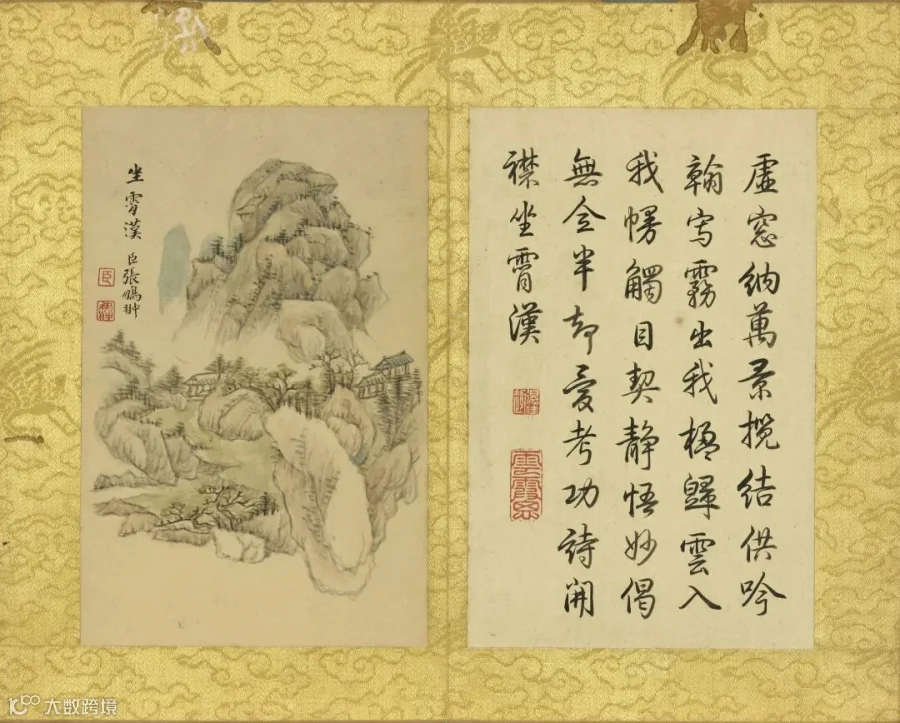 虛窓納萬景攬結供吟
翰宿霧出我楹歸雲入
我幔觸目契靜悟妙偈
無全半却愛考功詩開
襟坐霄漢
坐霄漢 臣張鵬翀
臣
大数跨境